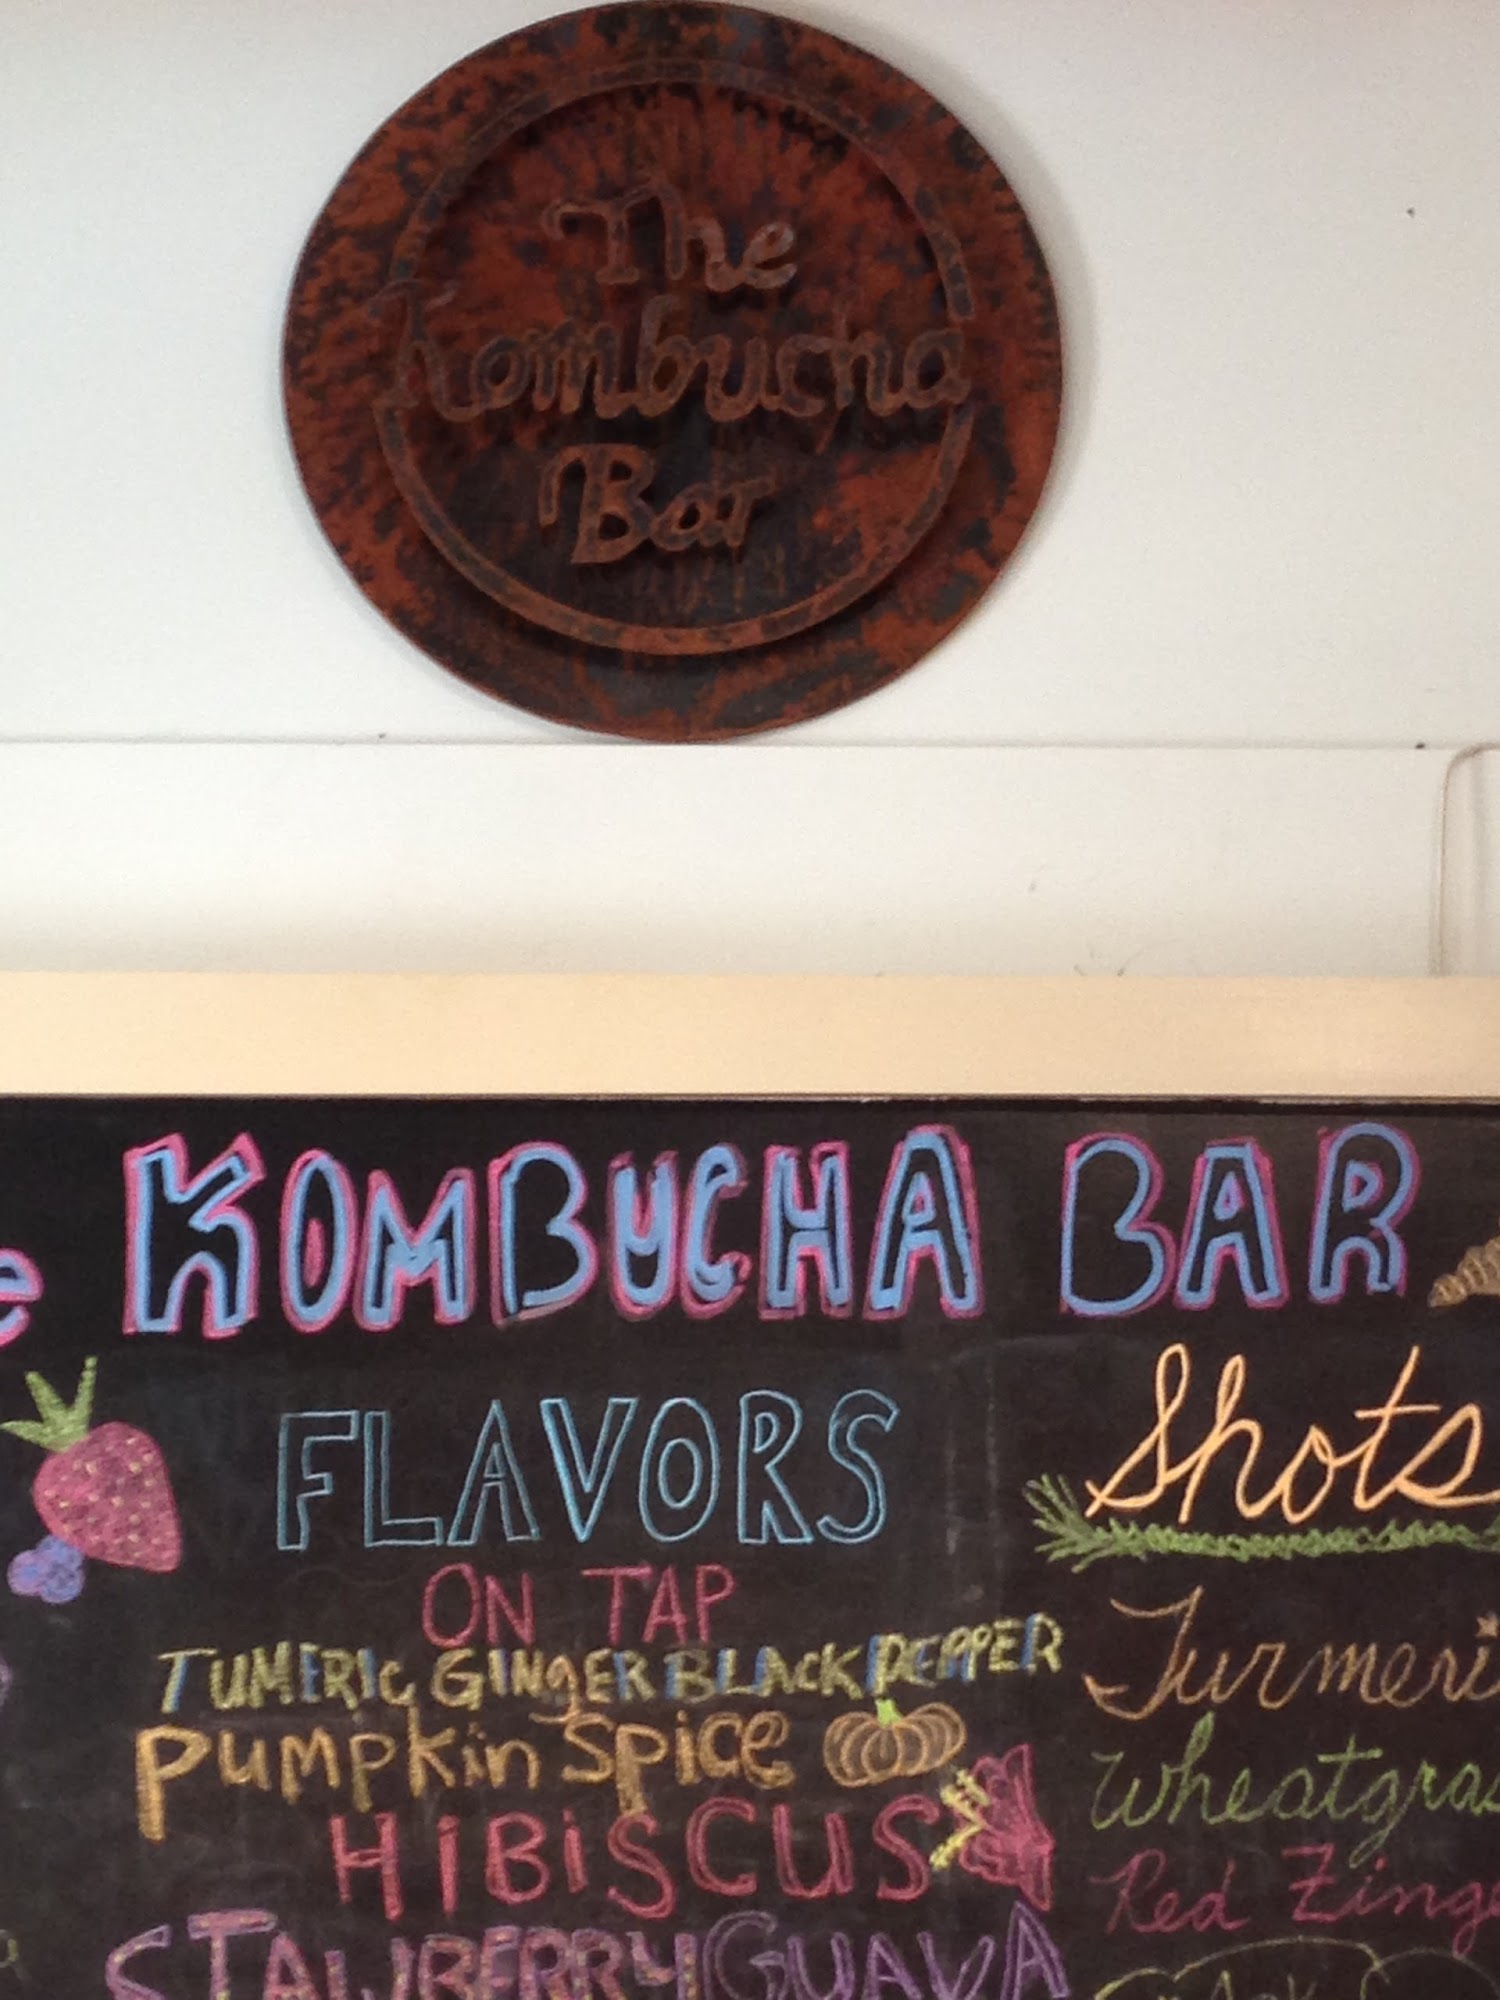 The
Kombucha
Bar
e KOMBUCHA BAR
FLAVORS
ON TAP
TUMERIC GINGER BLACK PEPPER
PUMPKIN SPICE
HIBISCUS
STAWBERRY GUAVA
Shots
Turmeri
Wheatgras
Red Zinge